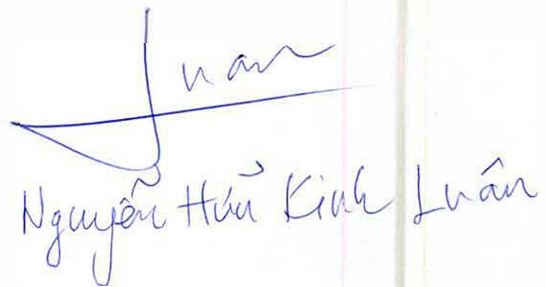 Luân
Nguyễn Hữu Kinh Luân